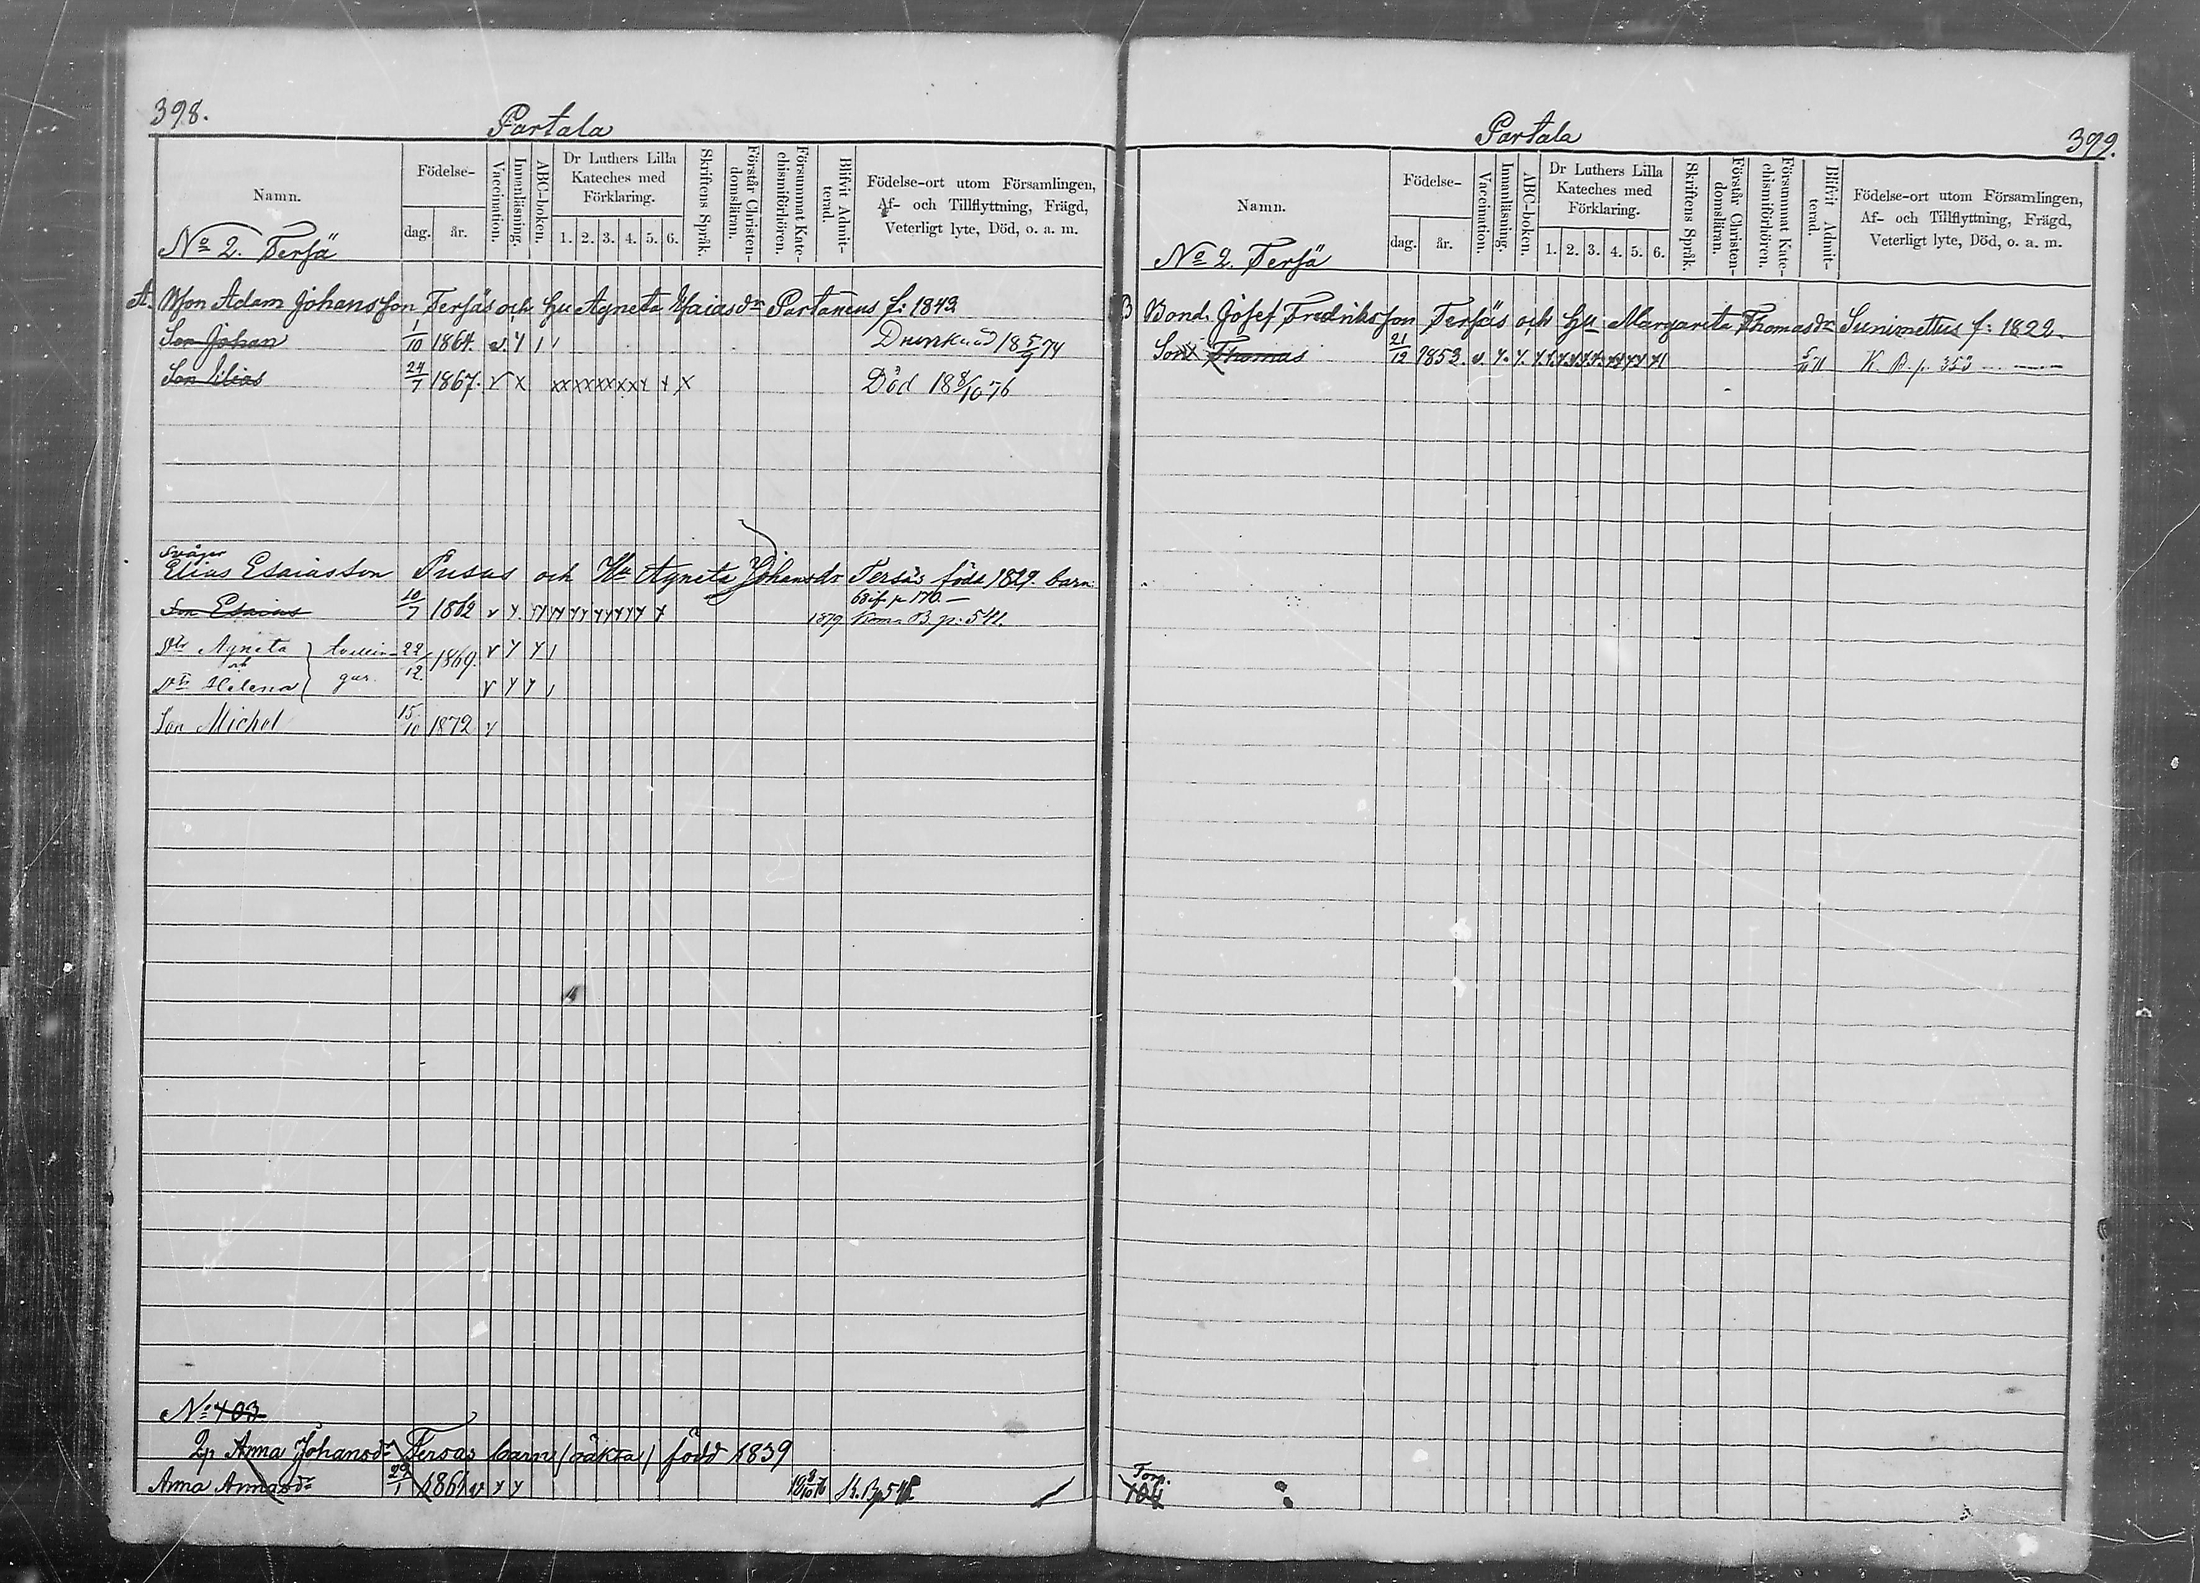 398.
Partala
Namn.
Födelse-
dag.
år.
Vaccination.
Innanläsning.
ABC-boken.
Dr Luthers Lilla
Kateches med
Förklaring.
1. 2. 3. 4. 5. 6.
Skriftens Språk.
Förstår Christen-
domsläran.
Försummat Kate-
chismiförhören.
Blifvit Admit-
terad.
Födelse-ort utom Församlingen,
Af- och Tillflyttning, Frägd,
Veterligt lyte, Död, o. a. m.
No 2. Tersä
A. Adam Johansson Tersäs och Hu Agneta Esaiasdr Partanens f: 1843
Son Johan 1/10 1864. v. Y Drunknad 18 5/7 74
Son Elias 24/7 1867. v x xxxxxxxxx x x Död 18 8/10 76
Svåger
Elias Esaiasson Pusus och Hu Agneta Johansdr Tersäs född 1829. barn:
Son Esaias 10/7 1862 v 1879 Kom. B. p: 541.
Dtr Agneta
och
Dtr Helena
tvillin-
gar.
22/12 1869. v Y Y
v Y Y
Son Michel 15/10 1872 v
No 403
Anna Johansdr Tersäs barn (oäkta) född 1839
Anna Annasdr 29/1 1861 v Y Y K. B. p 541
Partala
399.
Namn.
Födelse-
dag.
år.
Vaccination.
Innanläsning.
ABC-boken.
Dr Luthers Lilla
Kateches med
Förklaring.
1. 2. 3. 4. 5. 6.
Skriftens Språk.
Förstår Christen-
domsläran.
Försummat Kate-
chismiförhören.
Blifvit Admit-
terad.
Födelse-ort utom Församlingen,
Af- och Tillflyttning, Frägd,
Veterligt lyte, Död, o. a. m.
No 2. Tersä
B Bond. Josef Fredriksson Tersäs och Hu Margareta Thomasdr Sunimettus f: 1822.
Son Thomas 21/12 1853. v. K. B. p. 353
Torp.
104